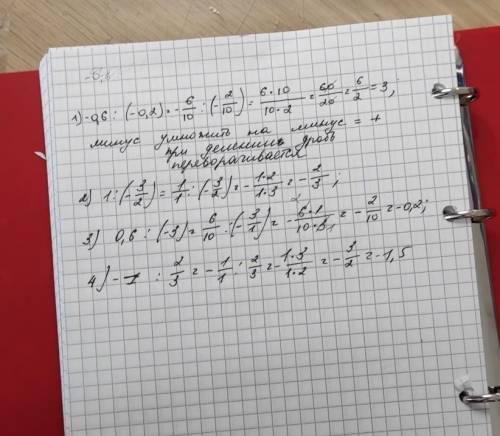 -0,
1) -0,6 : (-0,2) = -6/10 : (-2/10) = 6·10/10·2 = 60/20 = 6/2 = 3;
минус умножить на минус = +
при делении дробь
переворачивается
2) 1 : (-3/2) = 1/1 : (-3/2) = -1·2/1·3 = -2/3;
3) 0,6 : (-3) = 6/10 : (-3/1) = -6·1/10·3 = -2/10 = -0,2;
4) -1 : 2/3 = -1/1 : 2/3 = -1·3/1·2 = -3/2 = -1,5